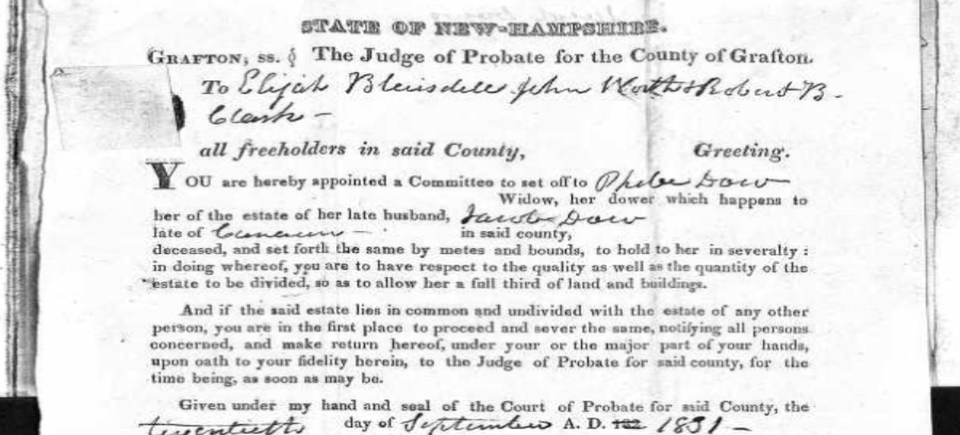 STATE OF NEW-HAMPSHIRE.
GRAFTON, ss. The Judge of Probate for the County of Grafton.
To Elijah Blaisdell John Worth & Robert B.
Clark -
all freeholders in said County, Greeting.
YOU are hereby appointed a Committee to set off to Phebe Dow
Widow, her dower which happens to
her of the estate of her late husband, Jacob Dow
late of Canaan - in said county,
deceased, and set forth the same by metes and bounds, to hold to her in severalty :
in doing whereof, you are to have respect to the quality as well as the quantity of the
estate to be divided, so as to allow her a full third of land and buildings.
And if the said estate lies in common and undivided with the estate of any other
person, you are in the first place to proceed and sever the same, notifying all persons
concerned, and make return hereof, under your or the major part of your hands,
upon oath to your fidelity herein, to the Judge of Probate for said county, for the
time being, as soon as may be.
Given under my hand and seal of the Court of Probate for said County, the
twentieth day of September A. D. 182 1831 -